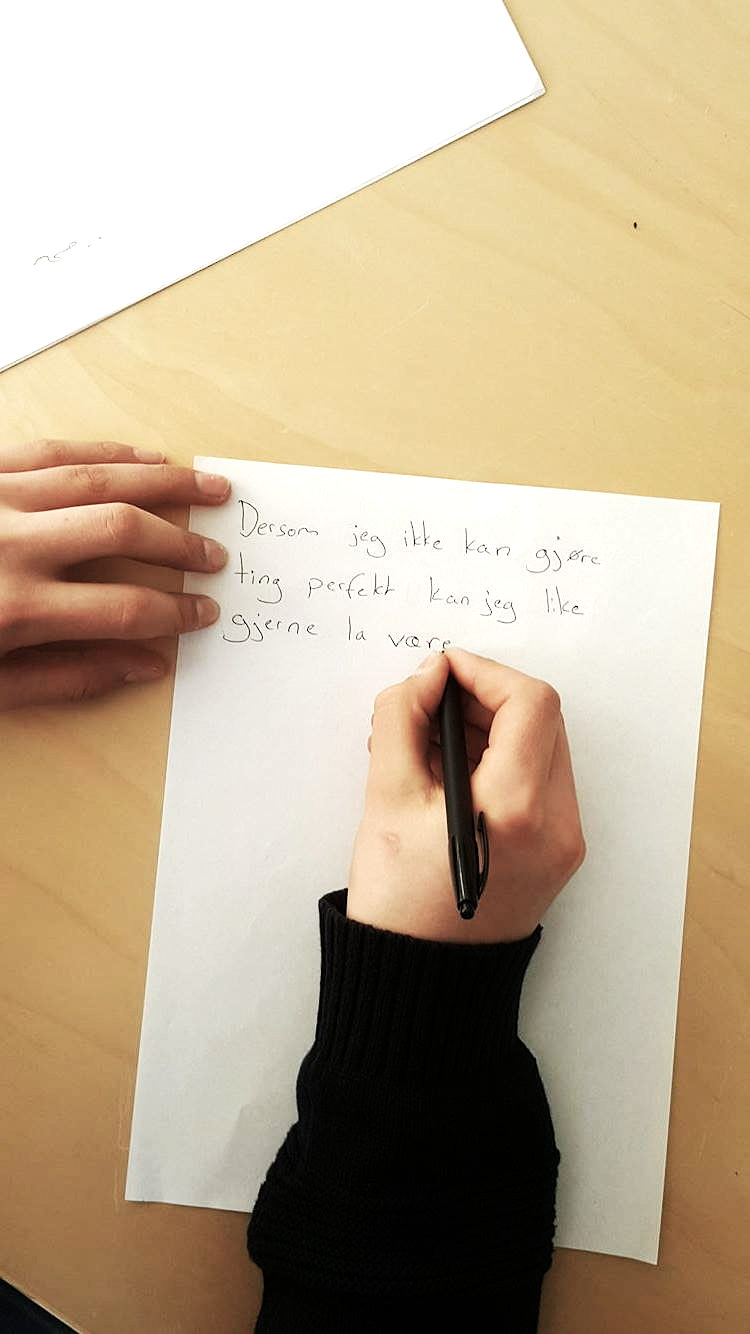 Dersom jeg ikke kan gjøre
ting perfekt kan jeg like
gjerne la være